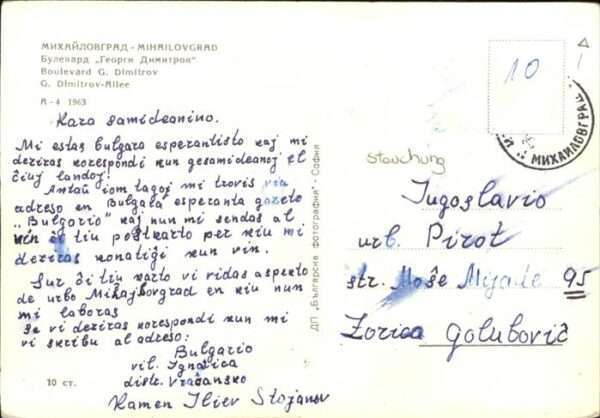 МИХАЙЛОВГРАД - MIHAILOVGRAD
Булевард „Георги Димитров"
Boulevard G. Dimitrov
G. Dimitrov-Allee
А-4 1963
Kara samideanino.
Mi estas bulgara esperantisto kaj mi
deziras korespondi kun gesamideanoj el
ĉiuj landoj!
Antaŭ iom tagoj mi trovis vian
adreson en Bulgara esperanta gazeto
„Bulgario" kaj nun mi sendas al
vin ĉi tiu postkarto per kiu mi
deziras konatiĝi kun vin.
Sur ĉi tiu karto vi vidas aspekto
de urbo Mihajlovgrad en kiu nun
mi laboras
Se vi deziras korespondi kun mi
vi skribu al adreso:
Bulgario
vil. Ignatica
distr. Vraĉansko
Kamen Iliev Stojanov
10 ст.
ДП „Българска фотография" - София
10
МИХАЙЛОВГРАД
Jugoslavio
urb. Pirot
str. Moše Pijade 95
Zorica Golubović